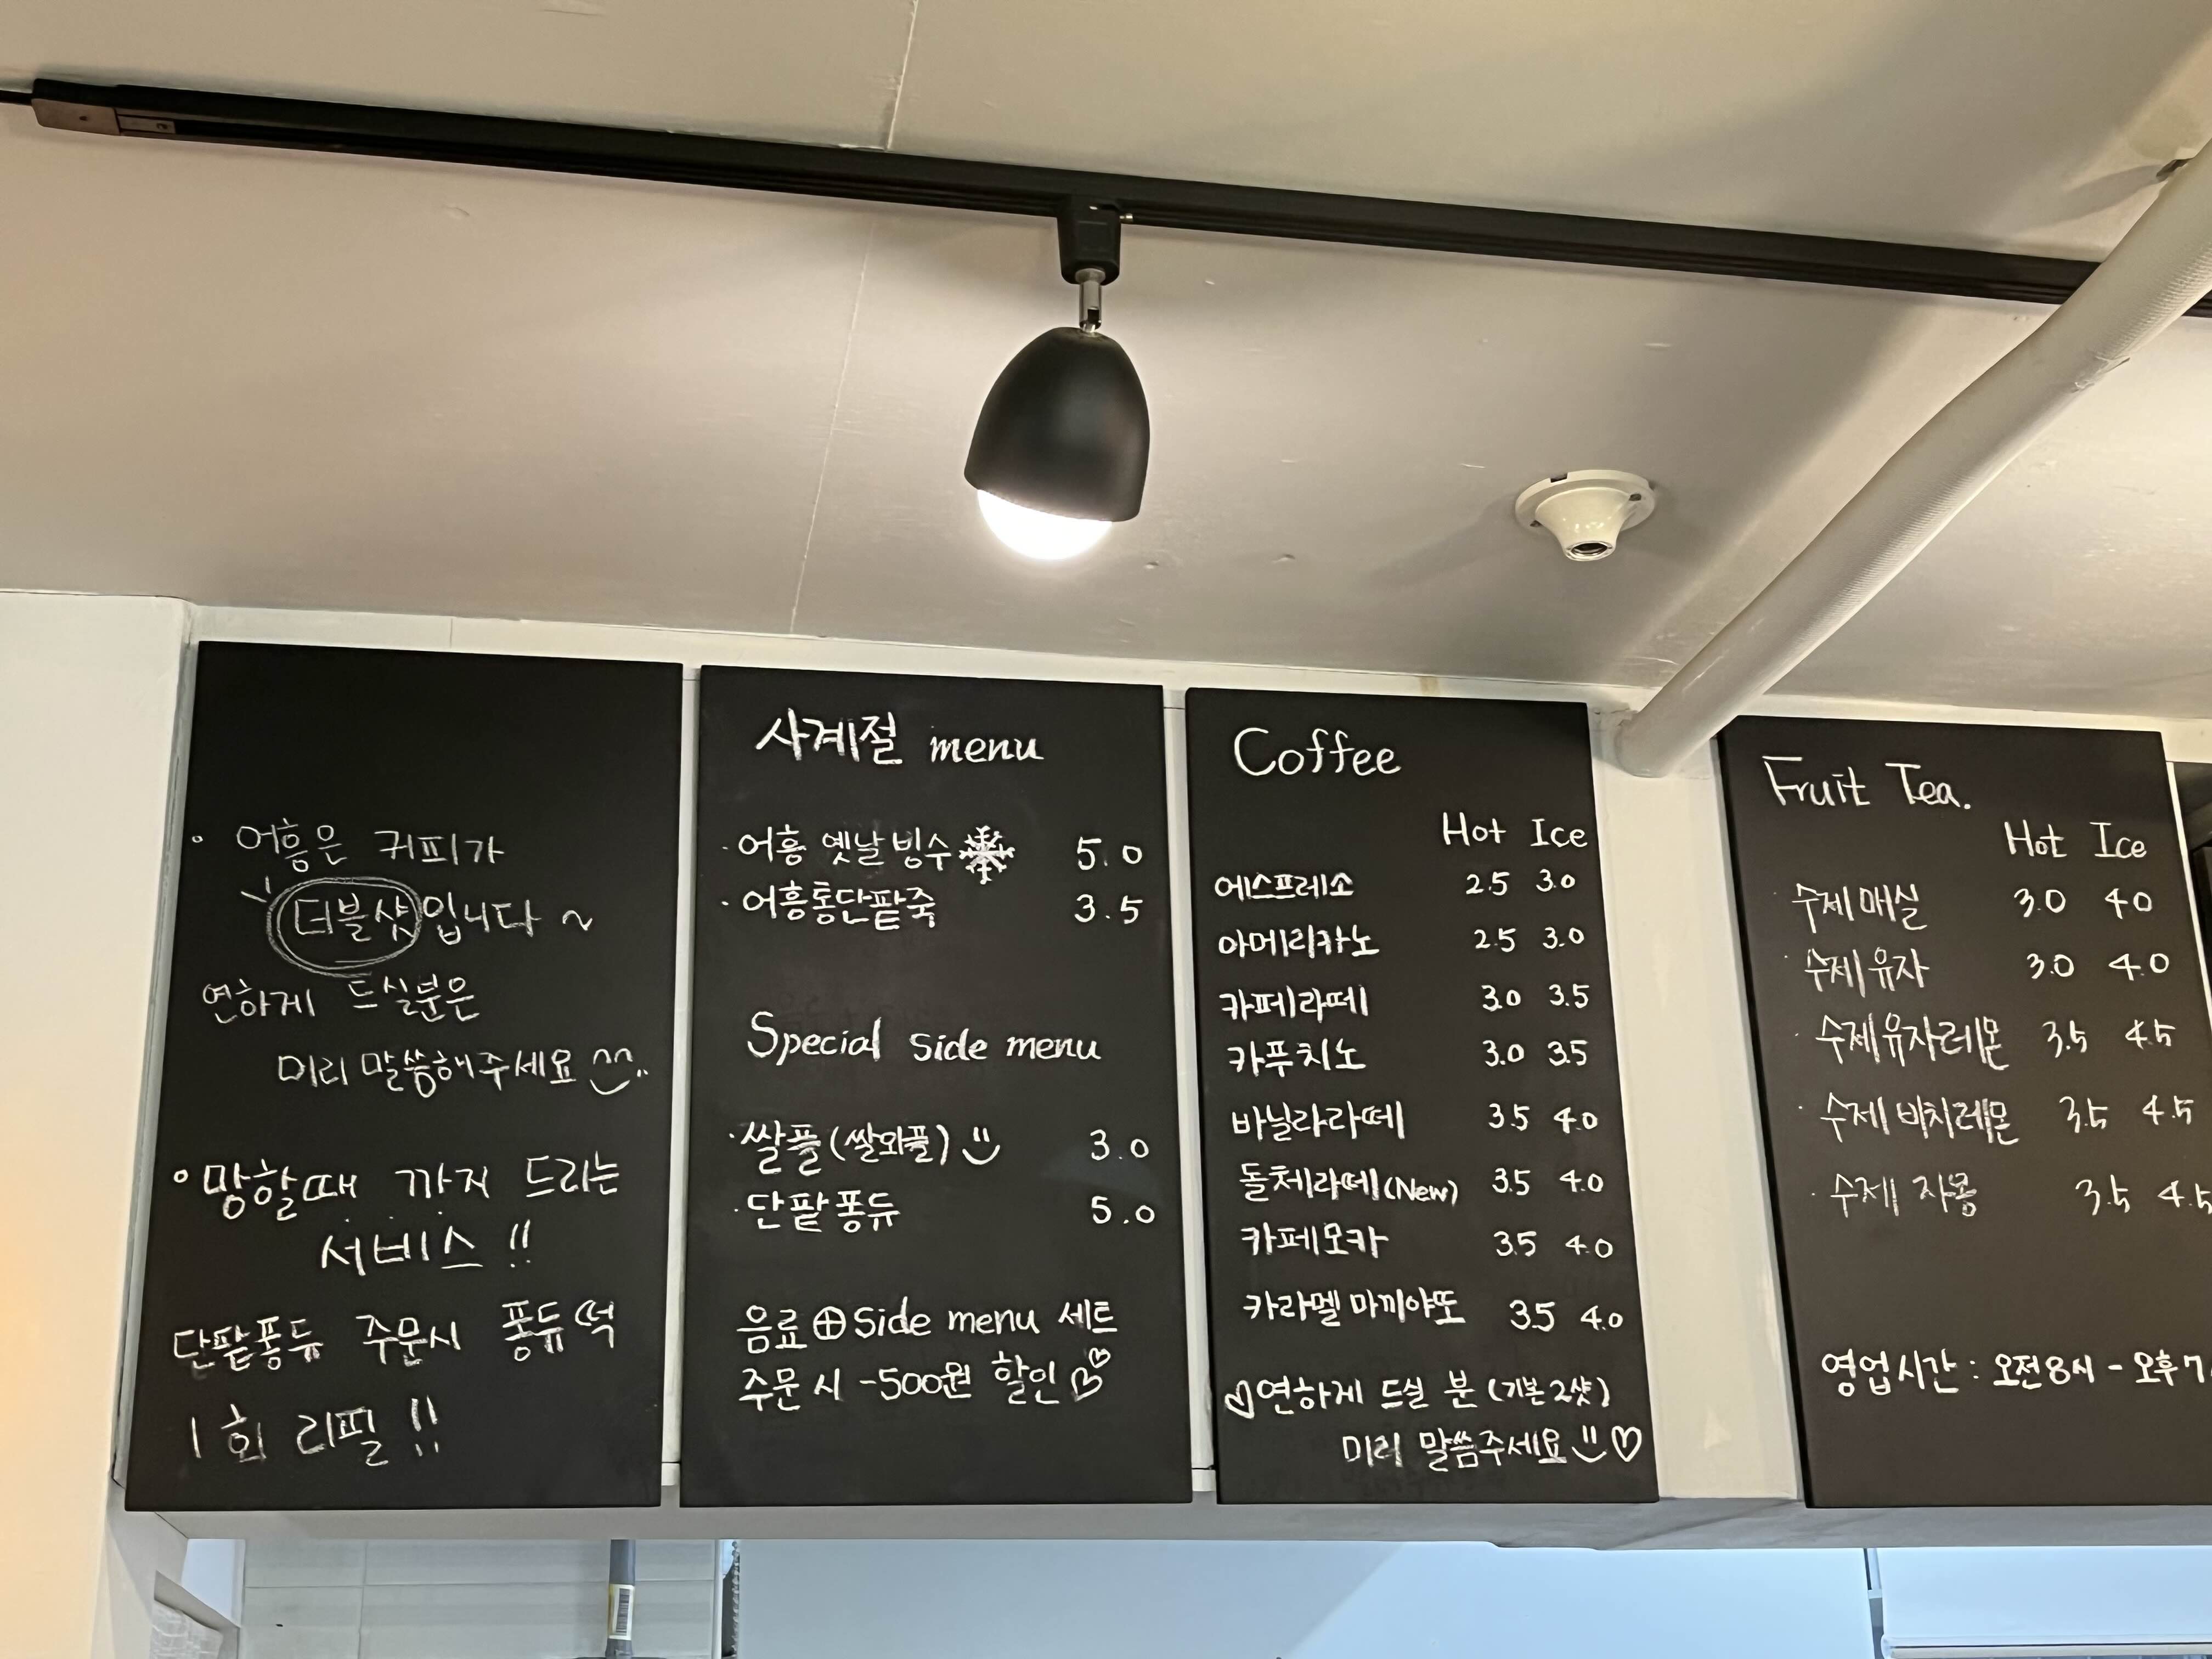 어흥은 커피가
더블샷입니다 ~
연하게 드실분은
미리 말씀해주세요
망할때 까지 드리는
서비스 !!
단팥퐁듀 주문시 퐁듀떡
1회 리필 !!
사계절 menu
· 어흥 옛날빙수 5.0
· 어흥통단팥죽 3.5
Special side menu
· 쌀플(쌀와플) 3.0
· 단팥퐁듀 5.0
음료 ⊕ Side menu 세트
주문시 -500원 할인
Coffee
Hot Ice
에스프레소 2.5 3.0
아메리카노 2.5 3.0
카페라떼 3.0 3.5
카푸치노 3.0 3.5
바닐라라떼 3.5 4.0
돌체라떼(New) 3.5 4.0
카페모카 3.5 4.0
카라멜 마끼야또 3.5 4.0
연하게 드실 분 (기본 2샷)
미리 말씀주세요
Fruit Tea.
Hot Ice
· 수제매실 3.0 4.0
· 수제유자 3.0 4.0
· 수제유자레몬 3.5 4.5
· 수제 비치레몬 3.5 4.5
· 수제 자몽 3.5 4.5
영업시간 : 오전8시 - 오후7